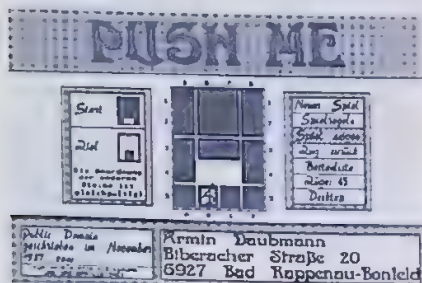 PUSH ME
Start
Ziel
Die Anordnung
der anderen
Steine ist
gleichgültig!
Neues Spiel
Spielregeln
Spiel
Zug zurück
Bestenliste
Züge: 45
Drucken
Public Domain
geschrieben im November
1987 von
Armin Daubmann
Biberacher Straße 20
6927 Bad Rappenau-Bonfeld